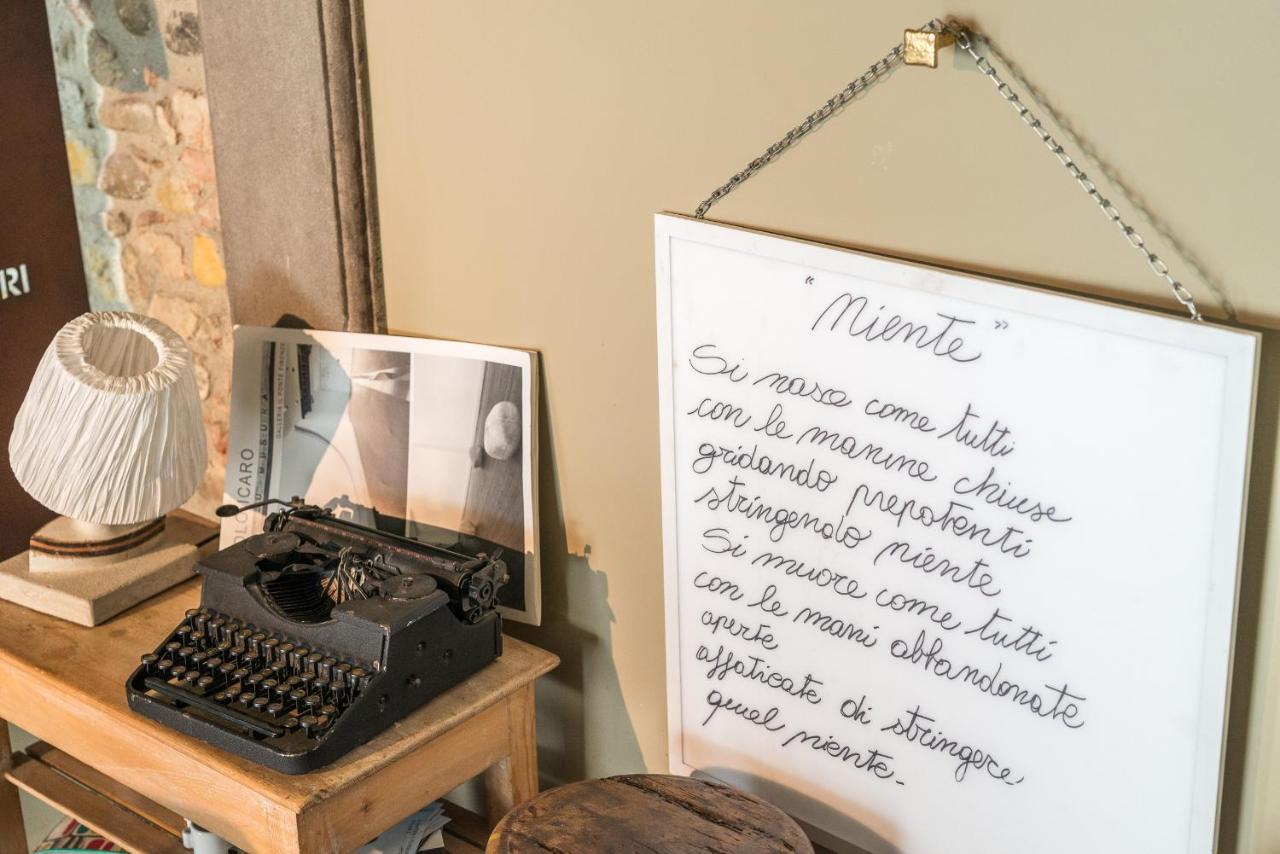 RI
"Niente"
Si nasce come tutti
con le manine chiuse
gridando prepotenti
stringendo niente
Si muore come tutti
con le mani abbandonate
aperte
affaticate di stringere,
quel niente.
GALLERIA IL PONTE FIRENZE